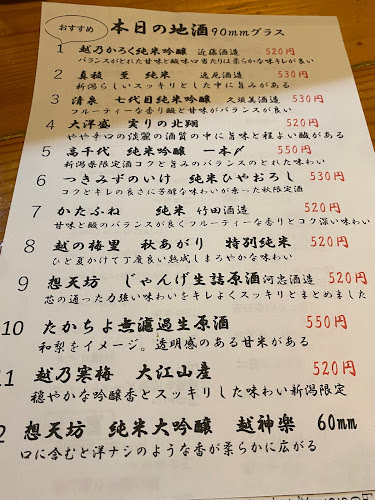 おすすめ 本日の地酒 90mmグラス
1 越乃かろく純米吟醸 近藤酒造 520円
バランスがとれた甘味と酸味口当たりは柔らかな味キレが良い
2 真稜 至 純米 逸見酒造 530円
新潟らしいスッキリとした中に旨みがある
3 清泉 七代目純米吟醸 久須美酒造 530円
フルーティーな香りと甘味がバランスが良い
4 大洋盛 実りの北翔 520円
やや辛口の淡麗の酒質の中に旨味と程よい酸がある
5 高千代 純米吟醸 一本〆 550円
新潟県限定酒コクと旨みのバランスのとれた味わい
6 つきみずのいけ 純米ひやおろし 530円
コクとキレの良さに芳醇な味わいが乗った秋限定酒
7 かたふね 純米 竹田酒造 520円
甘味と酸のバランスが良くフルーティーな香りとコク深い味わい
8 越の梅里 秋あがり 特別純米 520円
ひと夏かけて丁度良い熟成しまろやかな味わい
9 想天坊 じゃんげ生詰原酒 河忠酒造 520円
芯の通った力強い味わいをキレよくスッキリとまとめました
10 たかちよ無濾過生原酒 550円
和梨をイメージ。透明感のある甘米がある
11 越乃寒梅 大江山産 520円
穏やかな吟醸香とスッキリした味わい新潟限定
2 想天坊 純米大吟醸 越神楽 60mm
口に含むと洋ナシのような香が柔らかに広がる